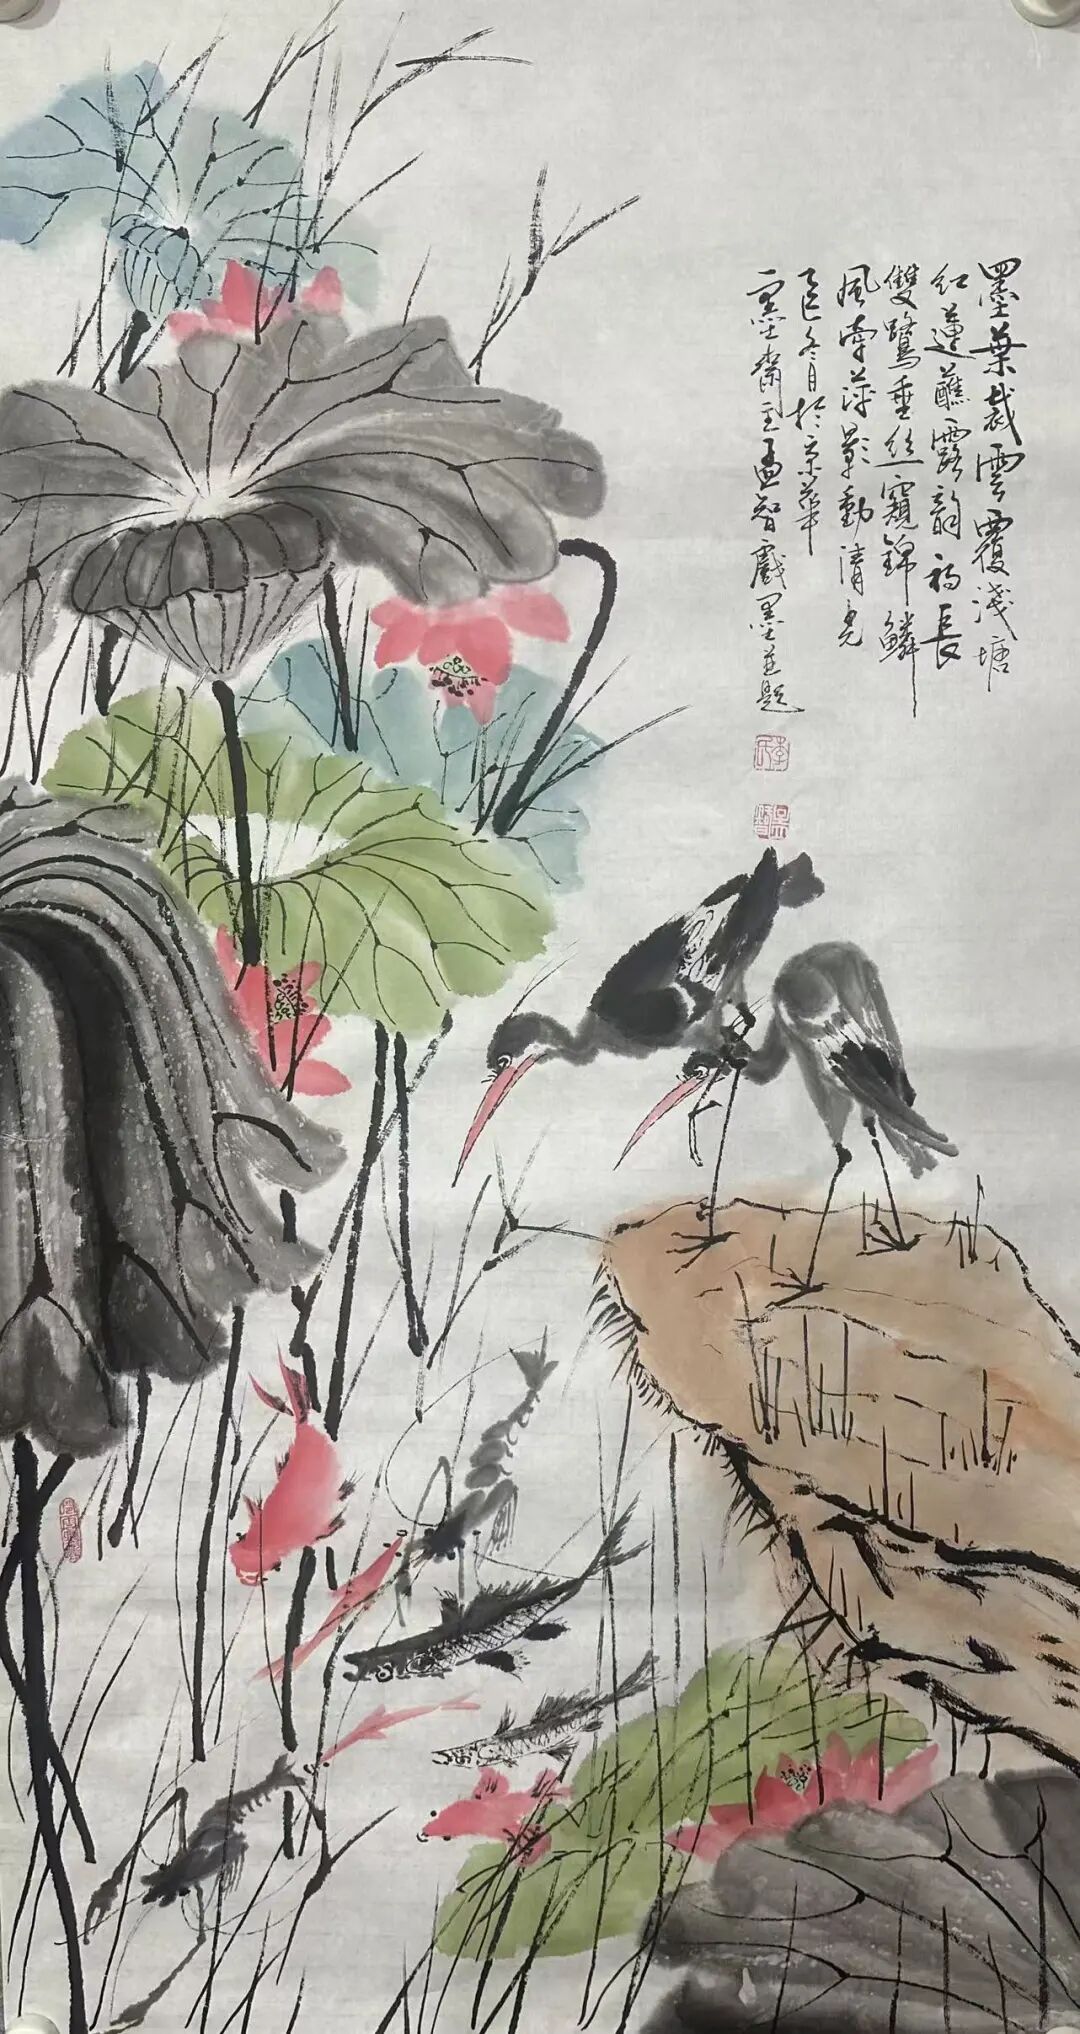 墨葉裁雲覆淺塘
紅蓮蘸露韵初長
雙鷺垂丝窺錦鱗
風牵萍影動清光
乙巳冬月於京華
墨齋主孟智戲墨並題